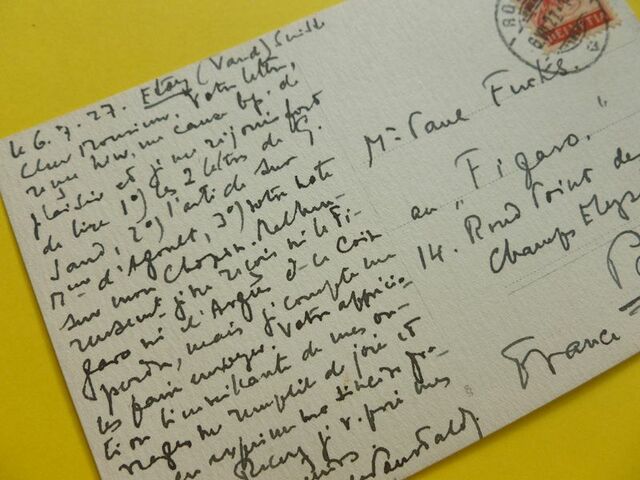 le 6.7.27. Etoy (Vaud) Suisse
Cher Monsieur. Votre lettre,
reçue hier, me cause bp. de
plaisir et je me réjouis fort
de lire 1°) les 2 lettres de G.
Sand, 2°) l'arti de sur
Mme d'Agoult, 3°) votre note
sur mon Chopin. Malheu-
reusement je ne reçois ni le Fi-
garo ni
perdu, mais je compte me
les faire envoyer. Votre apprécia-
tion bienveillante de mes ou-
vrages me remplit de joie et
ma sincère gra-
je v. prie mes
Mr Paul Fuchs.
au "Figaro."
14. Rond Point des
Champs Elys
Pa
France
HELVETIA